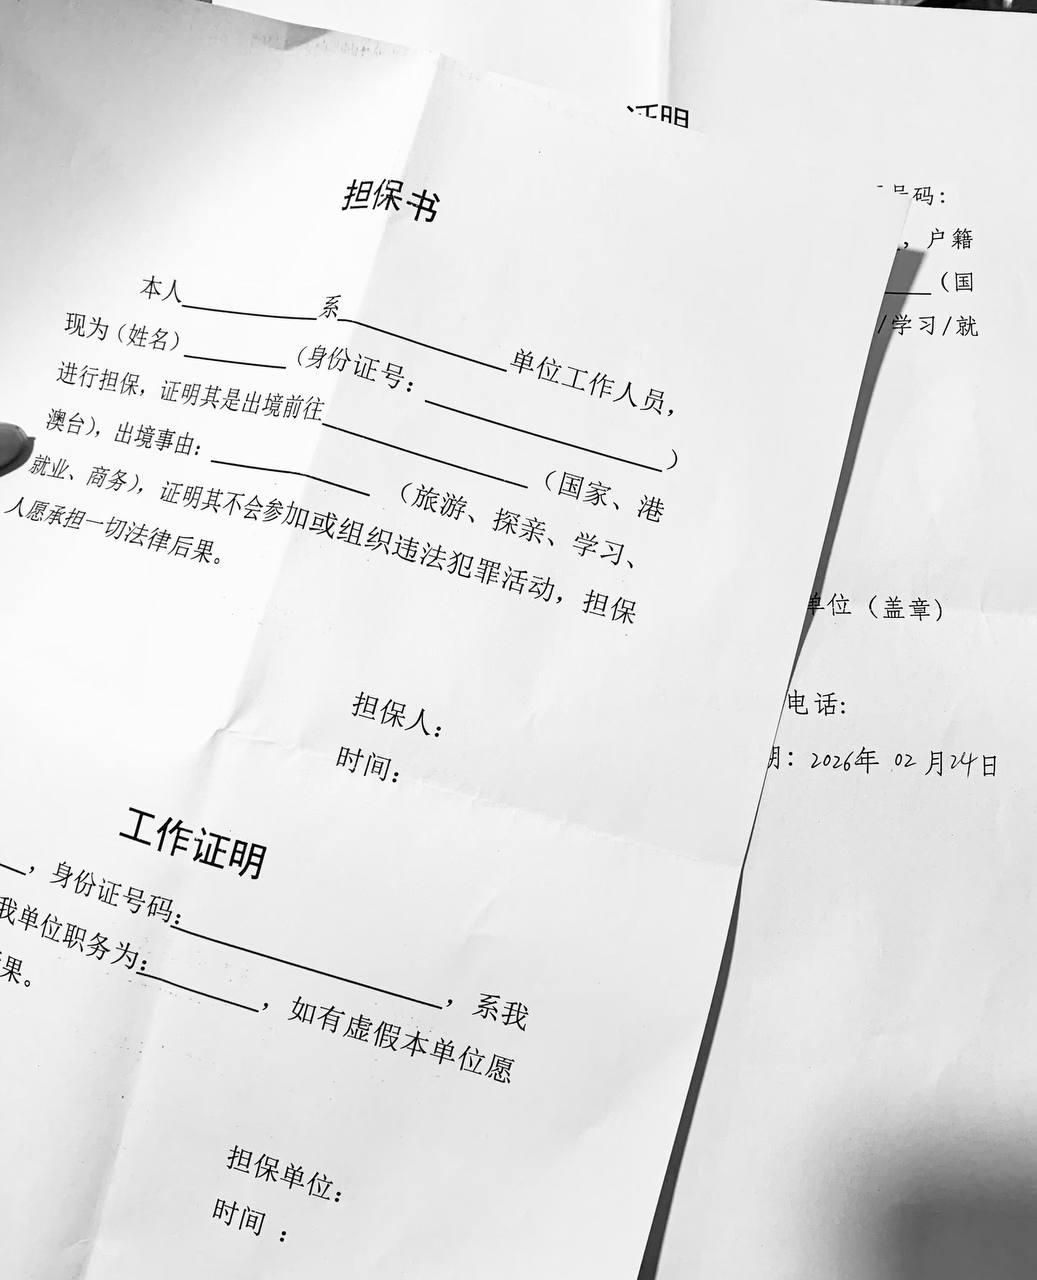 担保书
本人 系 单位工作人员，
现为（姓名） （身份证号： ）
进行担保，证明其是出境前往 （国家、港
澳台），出境事由： （旅游、探亲、学习、
就业、商务），证明其不会参加或组织违法犯罪活动，担保
人愿承担一切法律后果。
担保人：
时间：
工作证明
，身份证号码： ，系我
我单位职务为： ，如有虚假本单位愿
果。
担保单位：
时间：
证明
号码：
，户籍
（国
/学习/就
单位（盖章）
电话:
期：2026年 02月24日